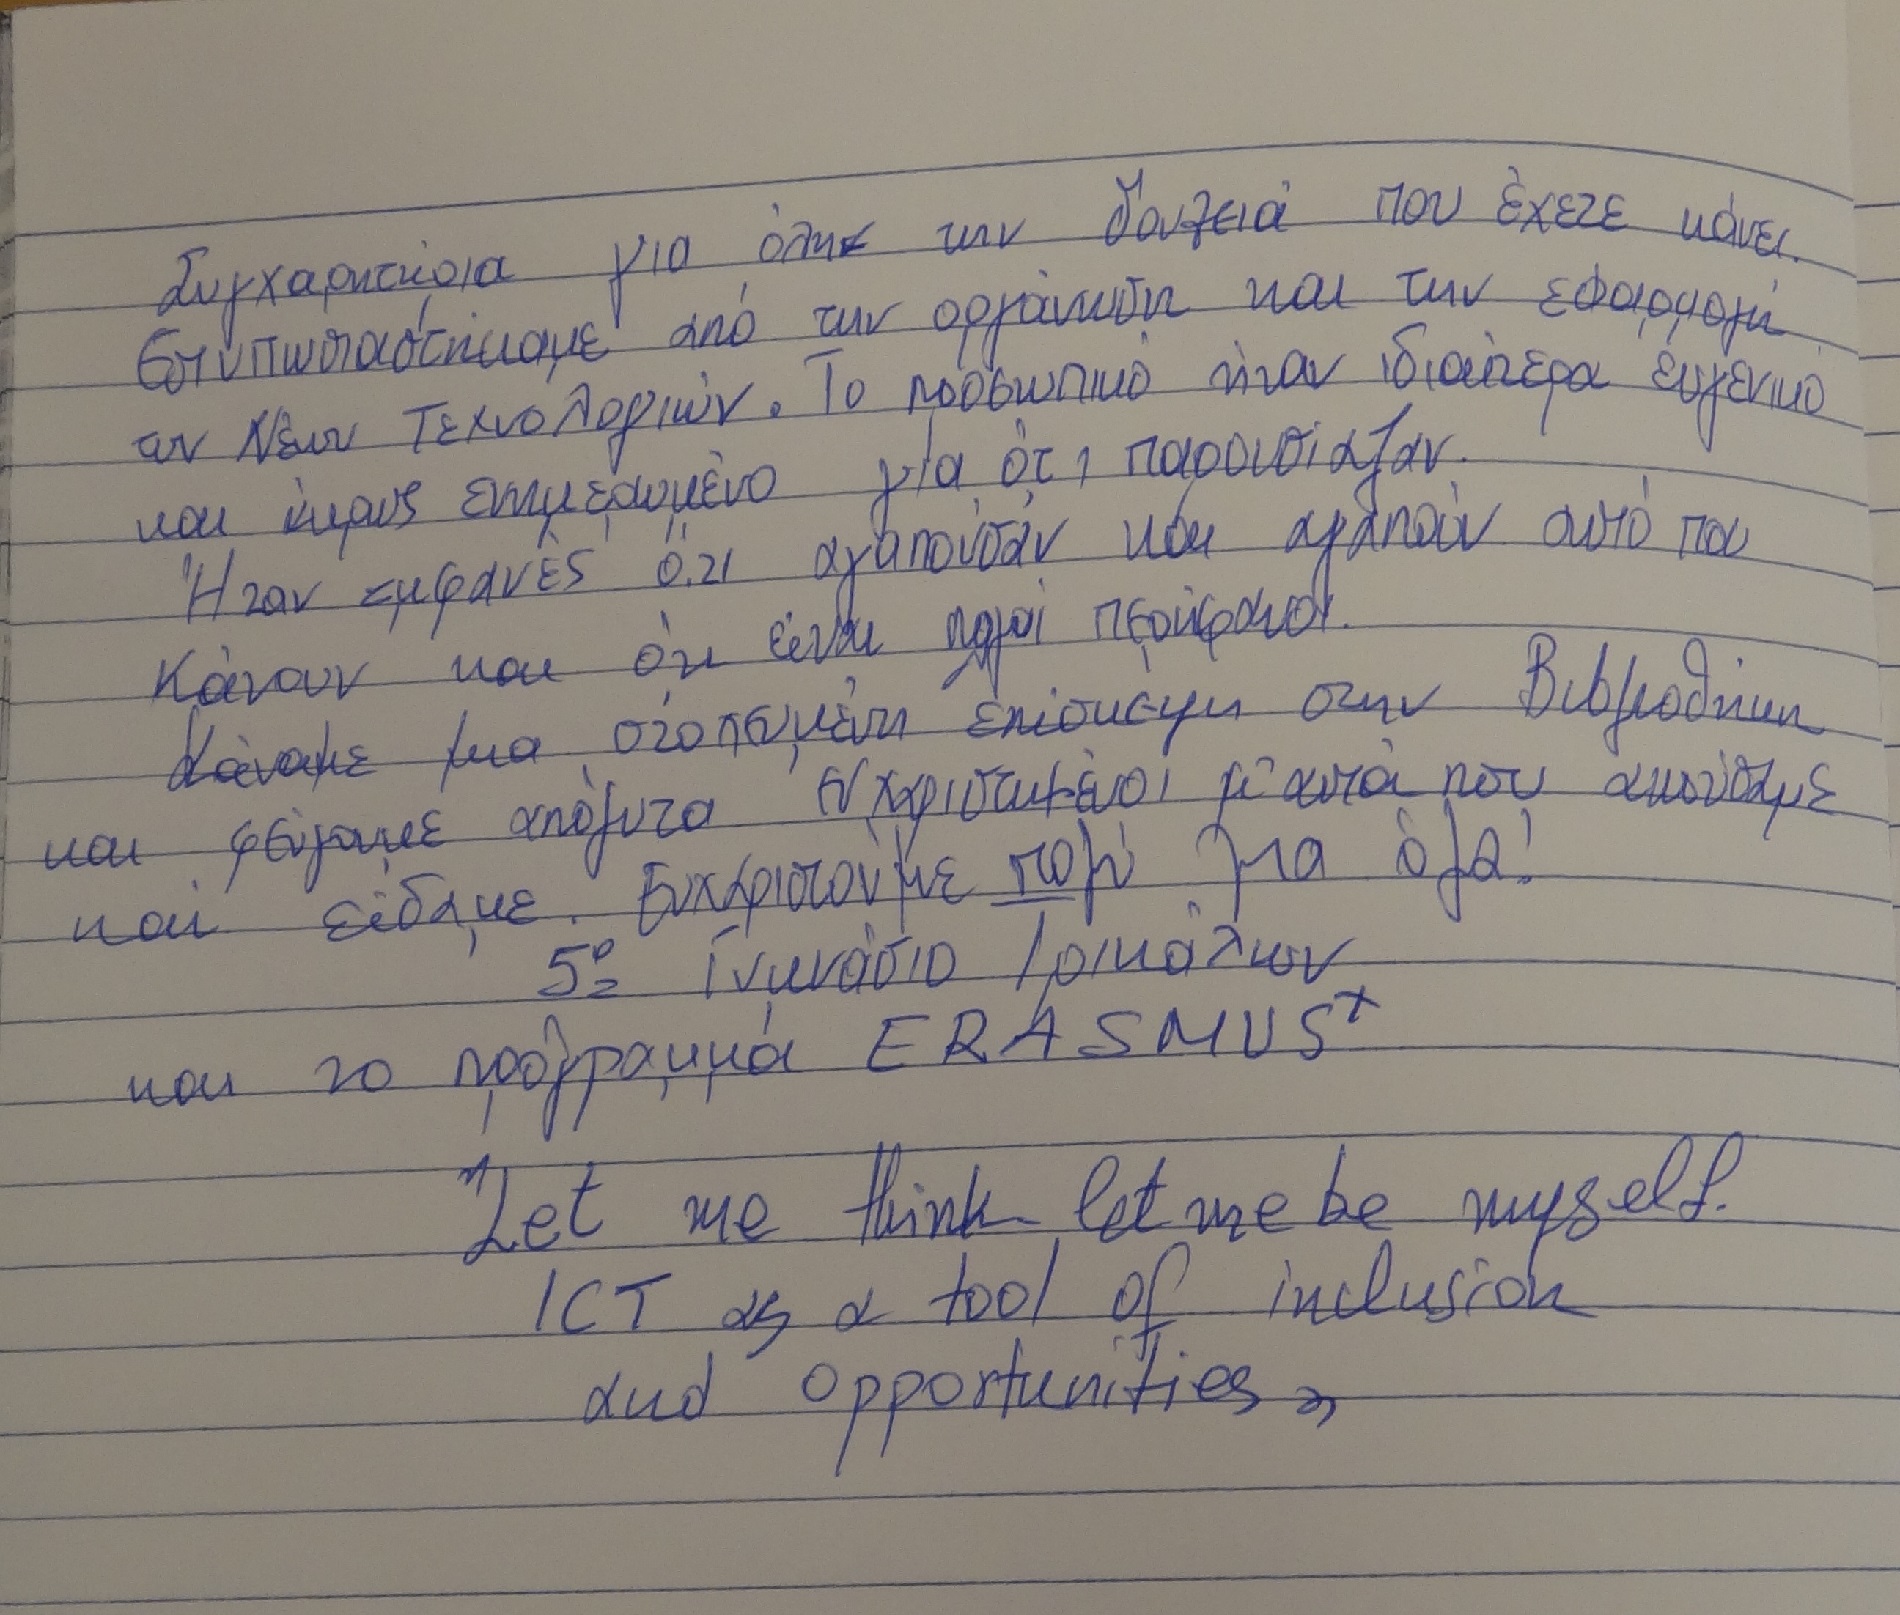 Συγχαρητήρια για όλη την δουλειά που έχετε κάνει.
Εντυπωσιαστήκαμε από την οργάνωση και την εφαρμογή
των Νέων Τεχνολογιών. Το προσωπικό ήταν ιδιαίτερα ευγενικό
και άκρως ενημερωμένο για ότι παρουσίαζαν.
Ήταν εμφανές ότι αγαπούσαν και αγαπούν αυτό που
κάνουν και ότι είναι πολύ περήφανοι.
Κάναμε μια στοχευμένη επίσκεψη στην Βιβλιοθήκη
και φεύγουμε απόλυτα ευχαριστημένοι μ' αυτά που ακούσαμε
και είδαμε. Ευχαριστούμε πολύ για όλα!
5ο Γυμνάσιο Τρικάλων
και το πρόγραμμα ERASMUS+
"Let me think let me be myself.
ICT as a tool of inclusion
and opportunities"